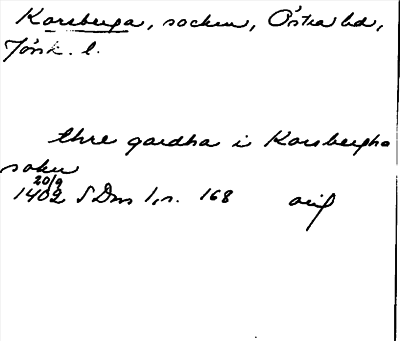 Korsberga, socken, Östra hd,
Jönk. l.
thre gardha i Korsbergha
sokn
20/9
1402 SDns 1, s. 168 orig